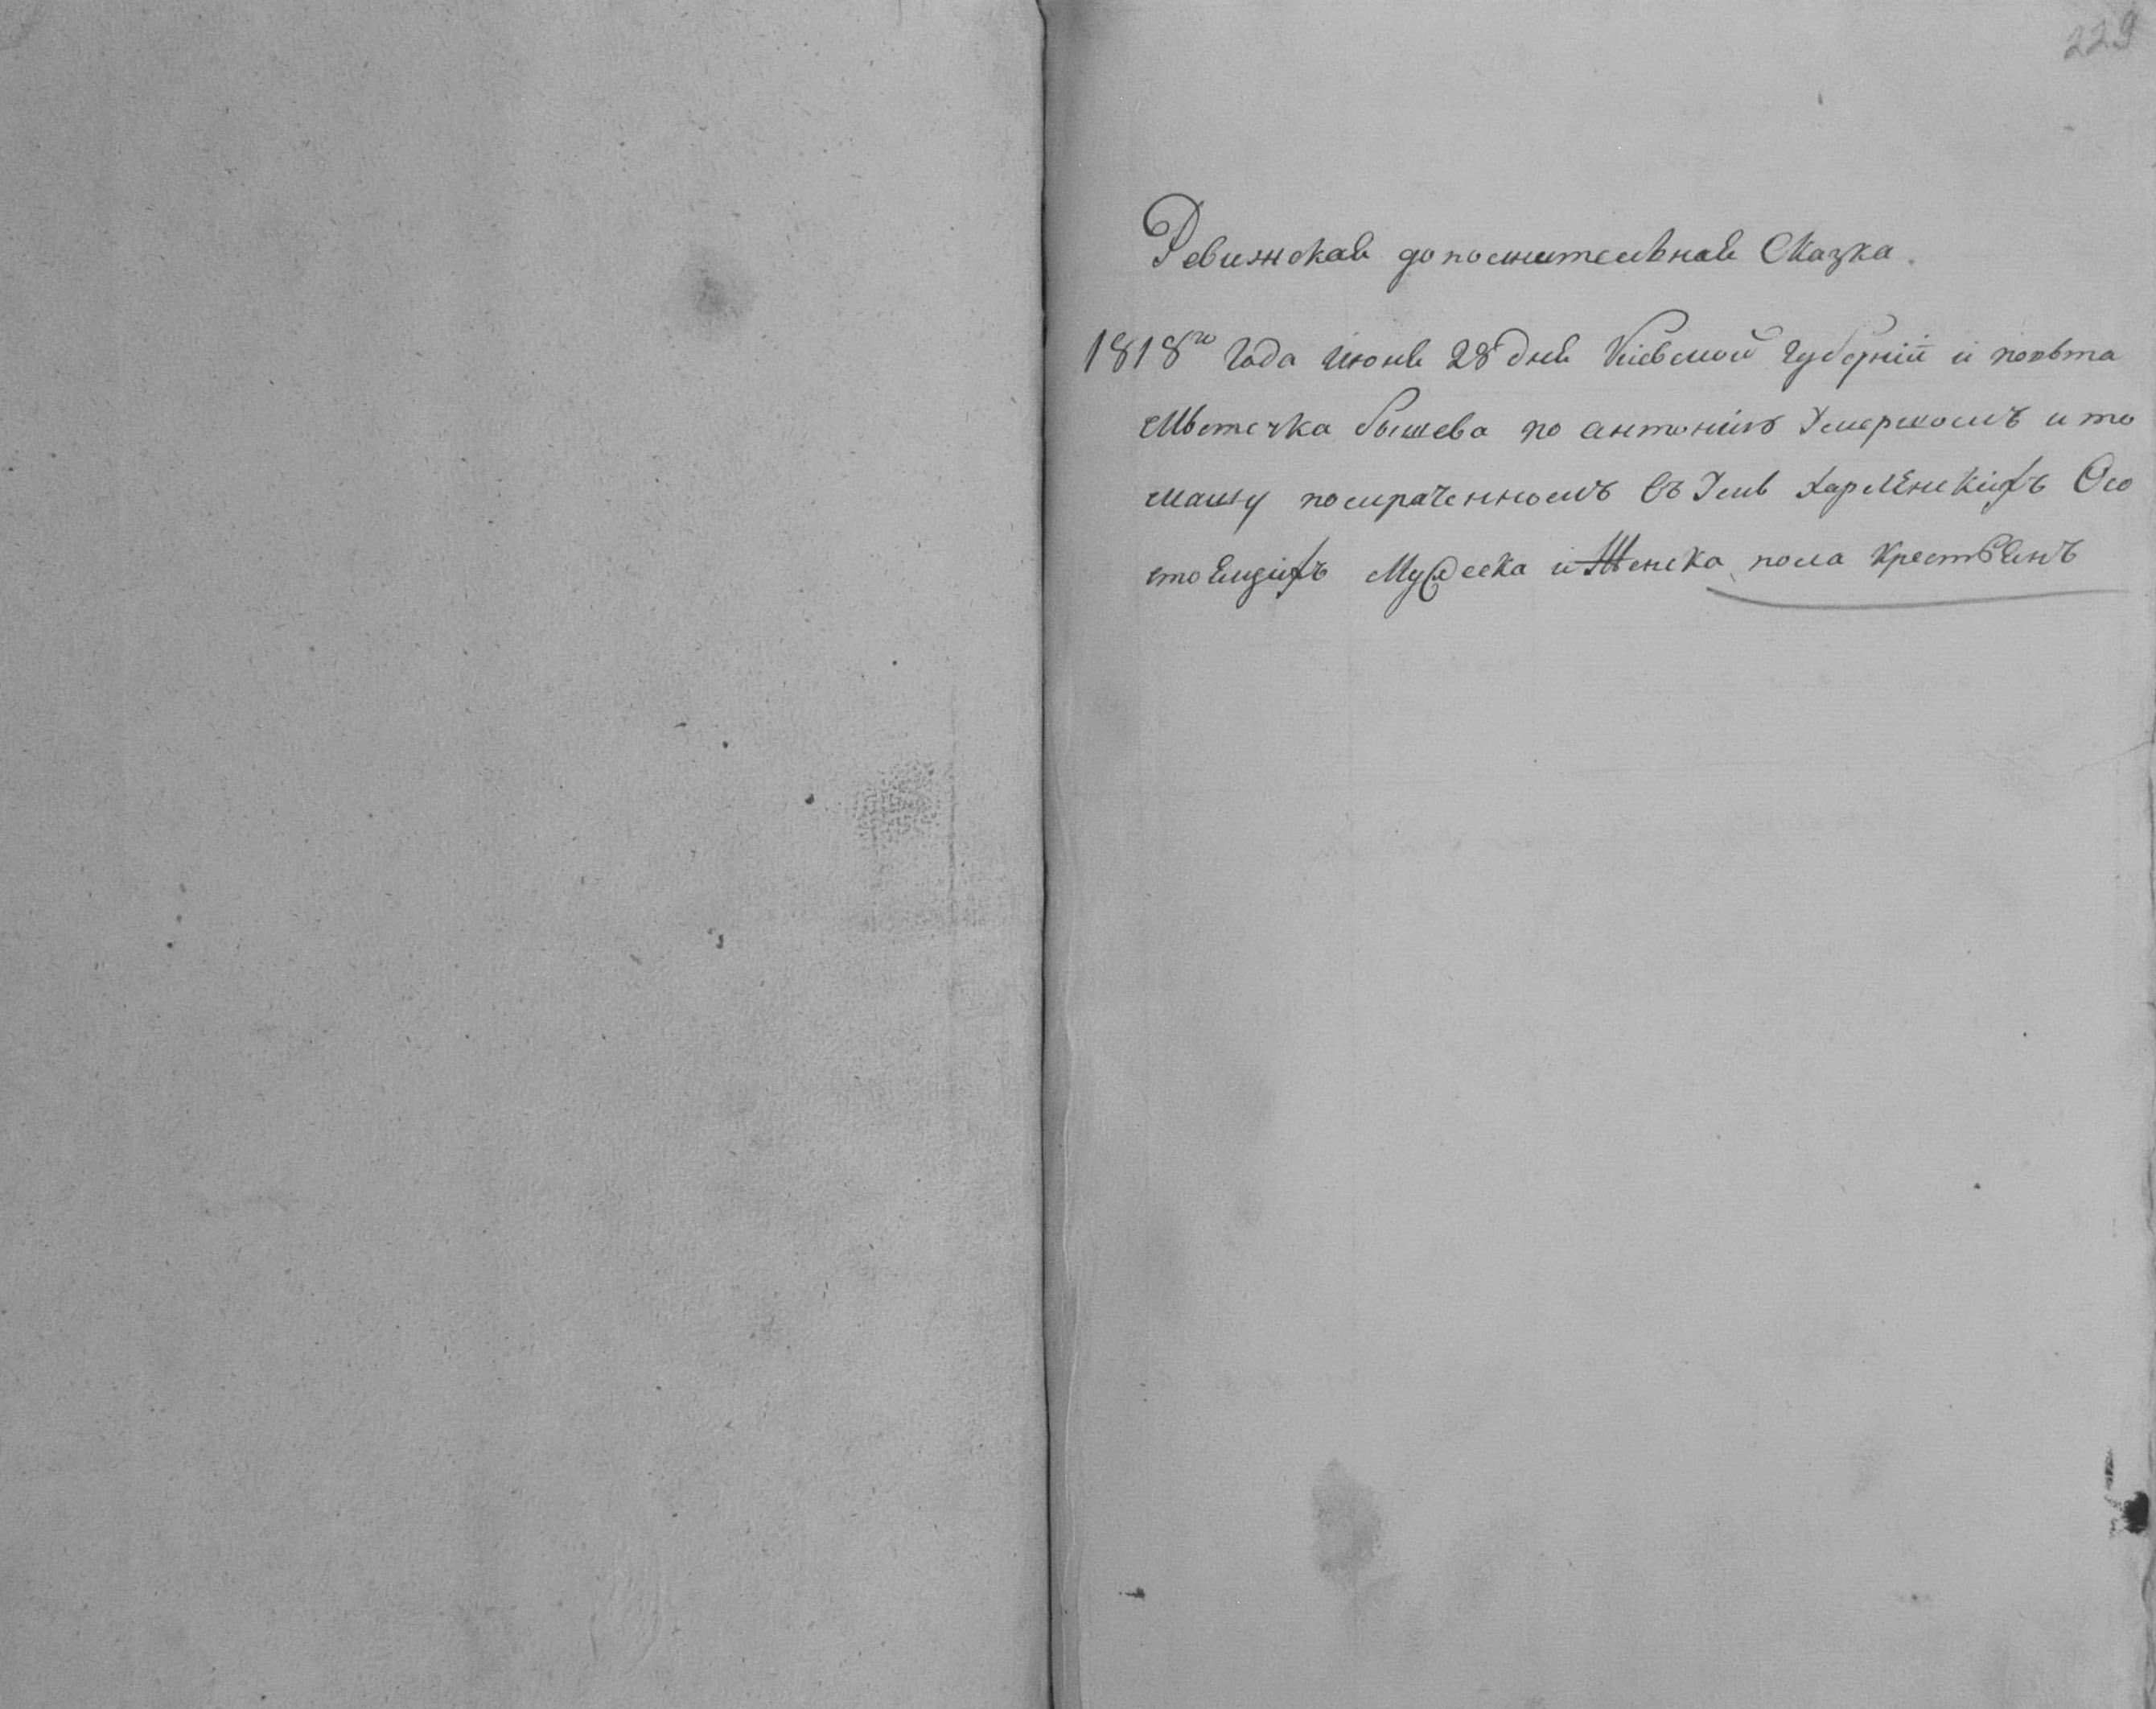 229
Ревижская дополнительная Сказка.
1818го Года июня 28 дня Кіевской губерніи и повѣта
Мѣстечка бышева по антонію Умершомъ и то
машу помраченномъ въ Умѣ Харлѣнскихъ Осо
стоящихъ Мужеска и Женска пола крестьянъ